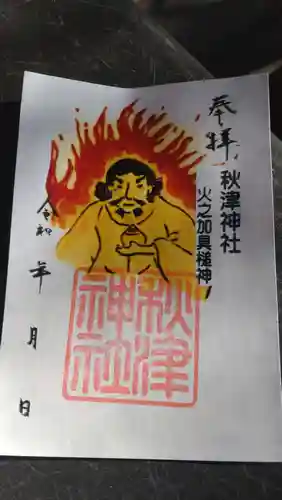 奉拝
秋津神社
火之加具槌神
令和
年
月
日
秋津
神社